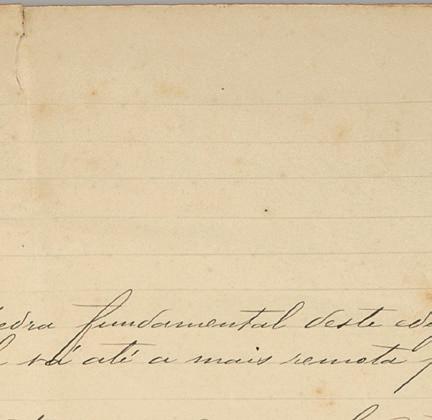 edra fundamental deste ed
vá até a mais remota p